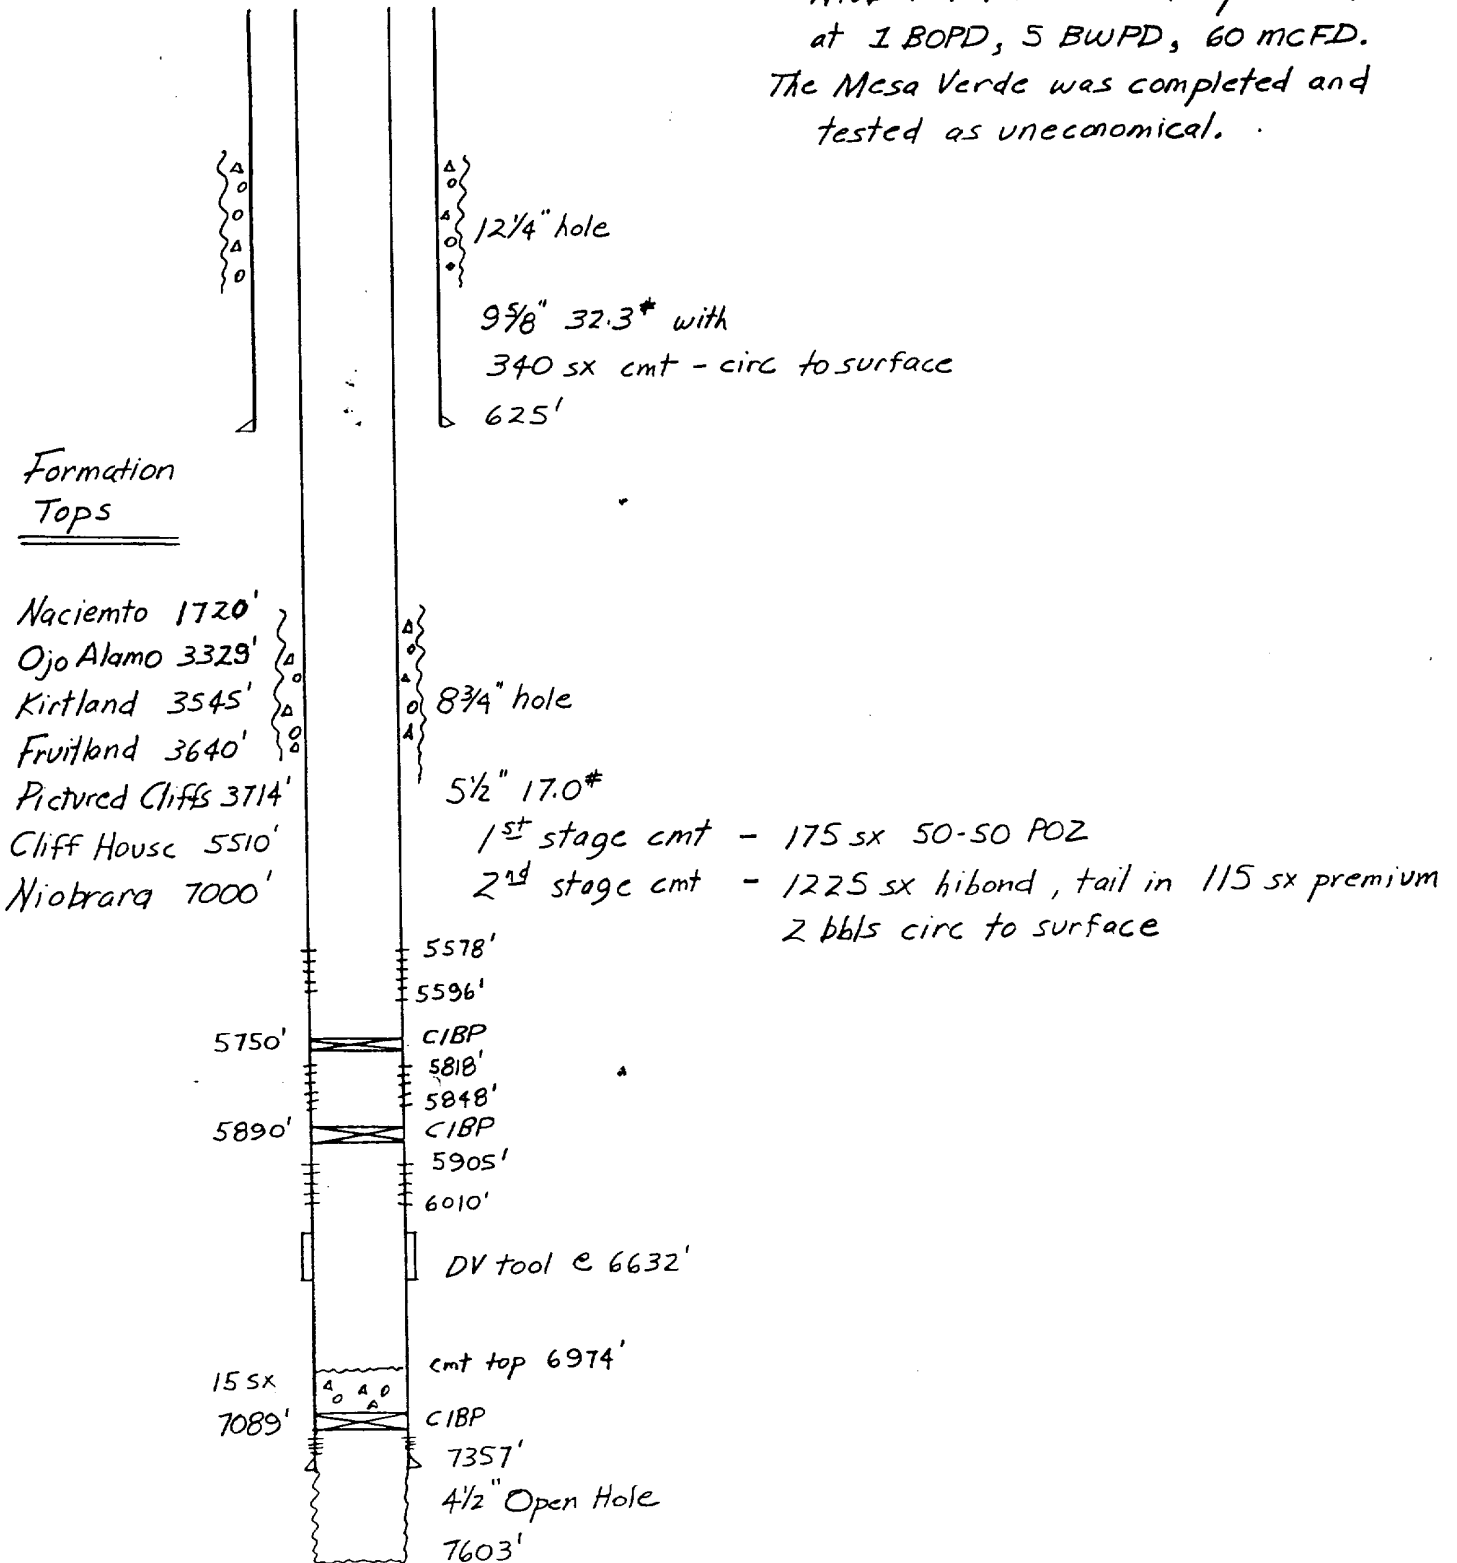 at 1 BOPD, 5 BWPD, 60 MCFD.
The Mesa Verde was completed and
tested as uneconomical.
12 1/4" hole
9 5/8" 32.3# with
340 sx cmt - circ to surface
625'
Formation
Tops
Naciemto 1720'
Ojo Alamo 3329'
Kirtland 3545'
Fruitland 3640'
Pictured Cliffs 3714'
Cliff House 5510'
Niobrara 7000'
8 3/4" hole
5 1/2" 17.0#
1st stage cmt - 175 sx 50-50 POZ
2nd stage cmt - 1225 sx hibond, tail in 115 sx premium
2 bbls circ to surface
5578'
5596'
5750' CIBP
5818'
5848'
5890' CIBP
5905'
6010'
DV tool @ 6632'
cmt top 6974'
15 sx
7089' CIBP
7357'
4 1/2" Open Hole
7603'